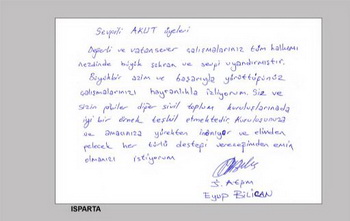 Saygıdeğer AKUT üyeleri
Değerli ve vatansever çalışmalarınız tüm halkımız
nezdinde büyük şükran ve sevgi uyandırmıştır.
Büyük bir azim ve başarıyla yürüttüğünüz
çalışmalarınızı hayranlıkla izliyorum. Siz ve
sizin gibiler diğer sivil toplum kuruluşlarınada
iyi bir örnek teşkil etmektedir. Kuruluşunuza
ve amacınıza yürekten inanıyor ve elimden
gelecek her türlü desteği vereceğimden emin
olmanızı istiyorum
Eyüp BİLİCAN
ISPARTA